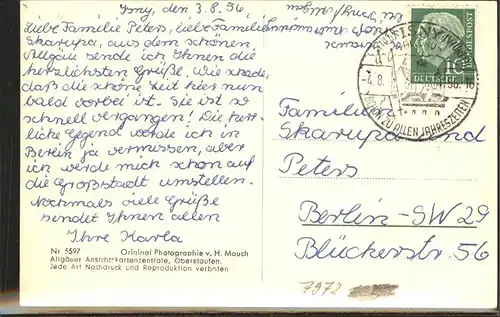 Isny, den 3.8.56.
Liebe Familie Peters, liebe Familie
Skarupa, aus dem schönen
Allgäu sende ich Ihnen die
herzlichsten Grüße. Wie schade,
daß die schöne Zeit hier nun
bald vorbei ist. Sie ist so
schnell vergangen! Die herr-
liche Gegend werde ich in
Berlin ja vermissen, aber
ich werde mich schon auf
die Großstadt umstellen.
Nochmals viele Grüße
sendet Ihnen allen
Ihre Karla
Nr 5597 Original Photographie v. H. Mauch
Allgäuer Ansichtkartenzentrale, Oberstaufen.
Jede Art Nachdruck und Reproduktion verboten
ISNY
ZU ALLEN JAHRESZEITEN
DEUTSCHE BUNDESPOST
10
Familien
Skarupa und
Peters
Berlin-SW 29
Blücherstr. 56
7972